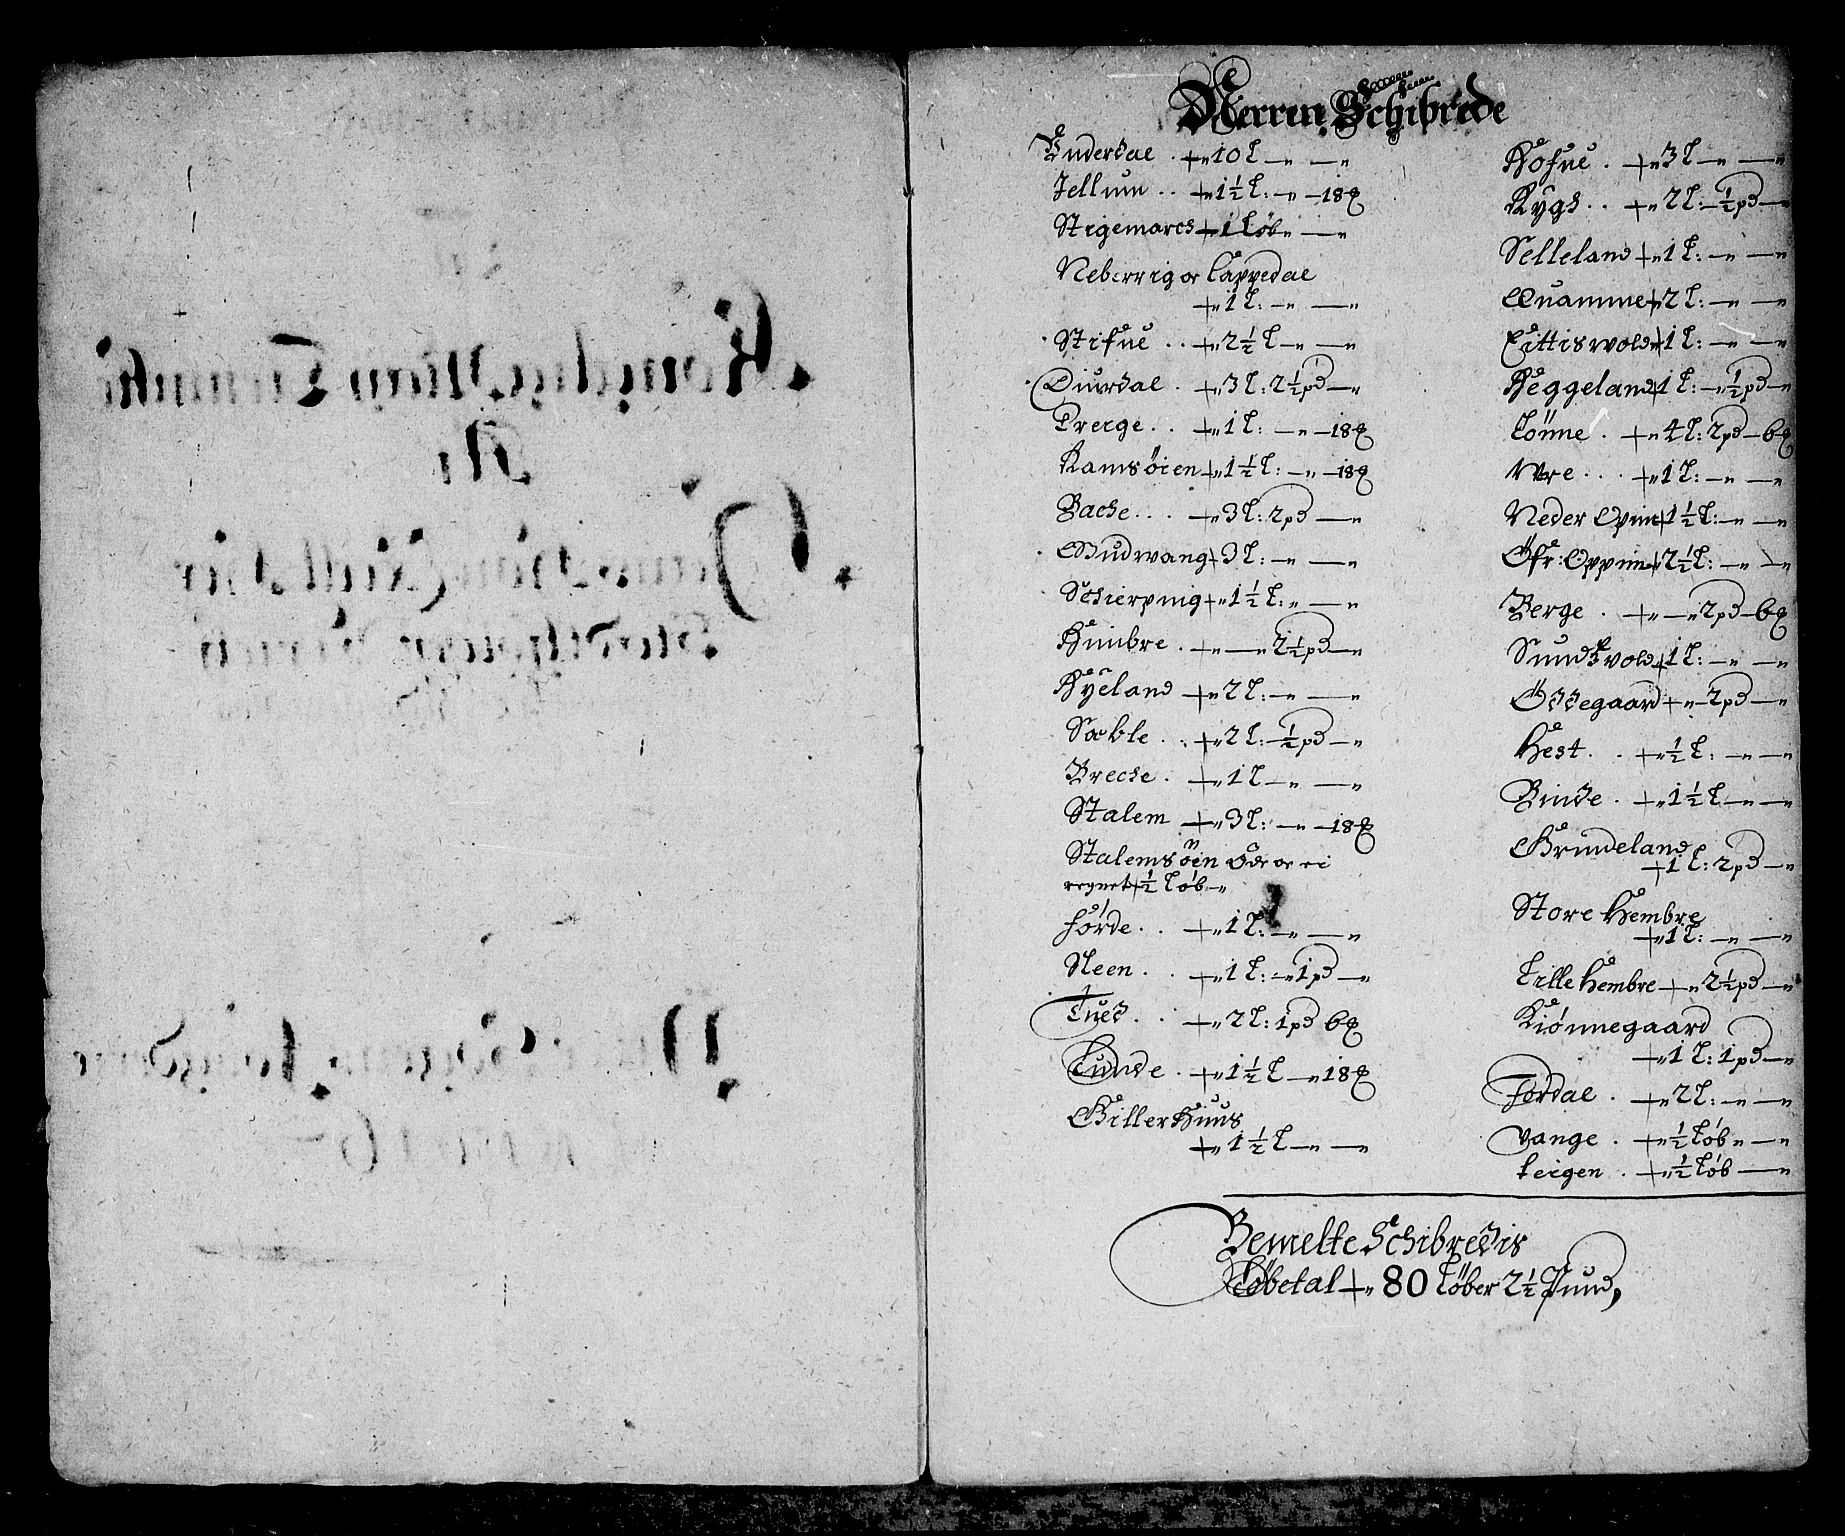 Nerren Schibrede
Underdal . +„ 10 L — „ — „
Jellum . . +„ 1½ L: — „ — 18
Stigemarch +„ 1 Løb „ — „
Neberrig oc Cappedal
+„ 1 L: — „ — „
Stifne . . +„ 2½ L — „ — „
Diurdal . +„ 3 L: 2½ pd — „
Dregge . . +„ 1 L: — „ — 18
Ramsøien +„ 1½ L: — „ — 18
Bache . . . +„ 3 L: 2 pd — „
Gudwang + 3 L: — „ — „
Schierping +„ 1½ L: „ — „
Himbre . +„ — „ 2½ pd — „
Ryeland +„ 2 L: — „ — „
Sæble . . +„ 2 L: — ½ pd — „
Breche . +„ 1 L — „ — „
Stalem +„ 3 L: — „ — 18
Stalemsøin Øde oc ei
regnet + ½ Løb — „
førde . . +„ 1 L: — „ — „
Neen . . +„ 1 L: — „ 1 pd — „
Tued . . +„ 2 L: 1 pd 6
Lunde . +„ 1½ L — „ 18
Giller Huus
+„ 1½ L — „ — „
Hofne . +„ 3 L — „ — „
Rygh . . +„ 2 L: — ½ pd — „
Selleland +„ 1 L: — „ — „
Quamme +„ 2 L: — „ — „
Littiswold +„ 1 L: — „ — „
Heggeland + 1 L: — „ ½ pd — „
Lönne . +„ 4 L: 2 pd — 6
Wre . . . +„ 1 L: — „ — „
Neder Opim + 1½ L: — „ — „
Öfr: Oppim +„ 2½ L: — „ — „
Berge . +„ — „ 2 pd — 6
Sundtvold + 1 L: — „ — „
Öddegaard +„ — 2 pd — „
Hest . . +„ ½ L: — „ — „
Binde . +„ 1½ L — „ — „
Grindeland
+ 1 L: 2 pd — „
Store Hembre
+„ 1 L: — „ — „
Lille Hembre +„ 2½ pd — „
Kiønnegaard
+„ 1 L: 1 pd — „
Fordal . +„ 2 L: — „ — „
Vange . +„ ½ Løb „ — „
teigen . +„ ½ Løb — „
Bemelte Schibredis
Løbetal +„ 80 Løber 2½ Pund,